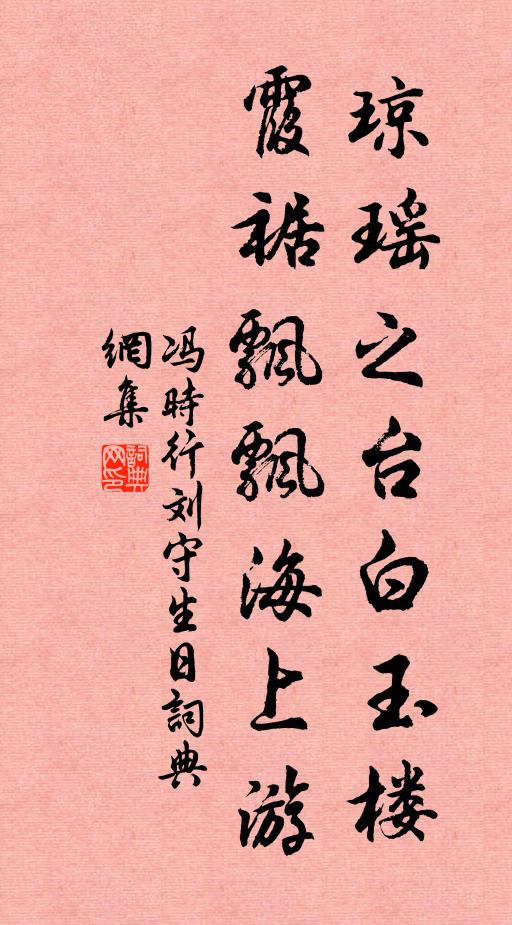 琼瑶之台白玉楼
霞裾飘飘海上游
冯時行刘守生日詞典
網集
詞典
网印